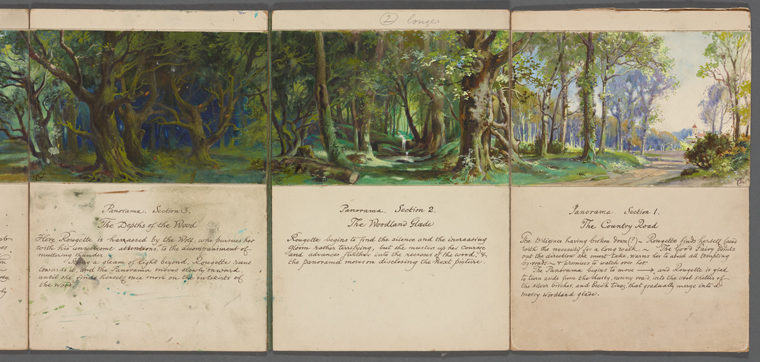 ② longer
Panorama Section 3.
The Depths of the Wood
Here Rougette is harassed by the Wolf, who pursues her
with his unwelcome attentions, to the accompaniment of
muttering thunder.
Seeing a gleam of light beyond, Rougette runs
towards it, and the Panorama moves slowly
until she finds herself once more on the outskirts of
the wood.
Panorama Section 2.
The Woodland Glade
Rougette begins to find the silence and the increasing
gloom rather terrifying, but she musters up her courage
and advances further into the recesses of the wood, &
the panorama moves on disclosing the next picture
Panorama Section 1.
The Country Road
The Diligence having broken down(?) – Rougette finds herself faced
with the necessity for a long walk. – The Good Fairy points
out the direction she must take, warns her to avoid all tempting
by-roads – & promises to watch over her.
The Panorama begins to move ⟶ and Rougette is glad
to turn aside from the dusty, sunny road, into the cool shelter of
the silver birches, and beech trees, that gradually merge into a
mossy woodland glade.